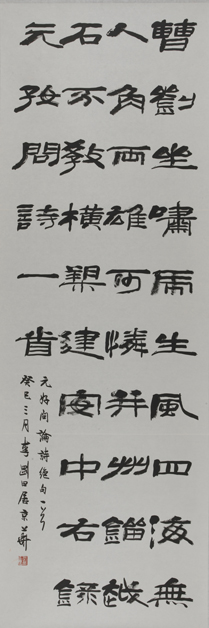 曹劉坐嘯虎生風四海無
人角兩雄可憐并州鎦越
石不教橫槊建安中右錄
元好問詩一首
元好问論詩絕句一首
癸巳三月李剛田居京華